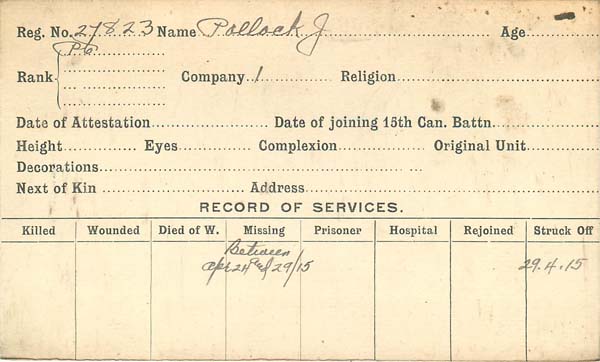 Reg. No. 27823 Name Pollock J Age
Rank Pte
Company 1 Religion
Date of Attestation Date of joining 15th Can. Battn.
Height Eyes Complexion Original Unit
Decorations
Next of Kin Address
RECORD OF SERVICES.
Killed Wounded Died of W. Missing Prisoner Hospital Rejoined Struck Off
Between
Apr 24 & 29/15 29.4.15